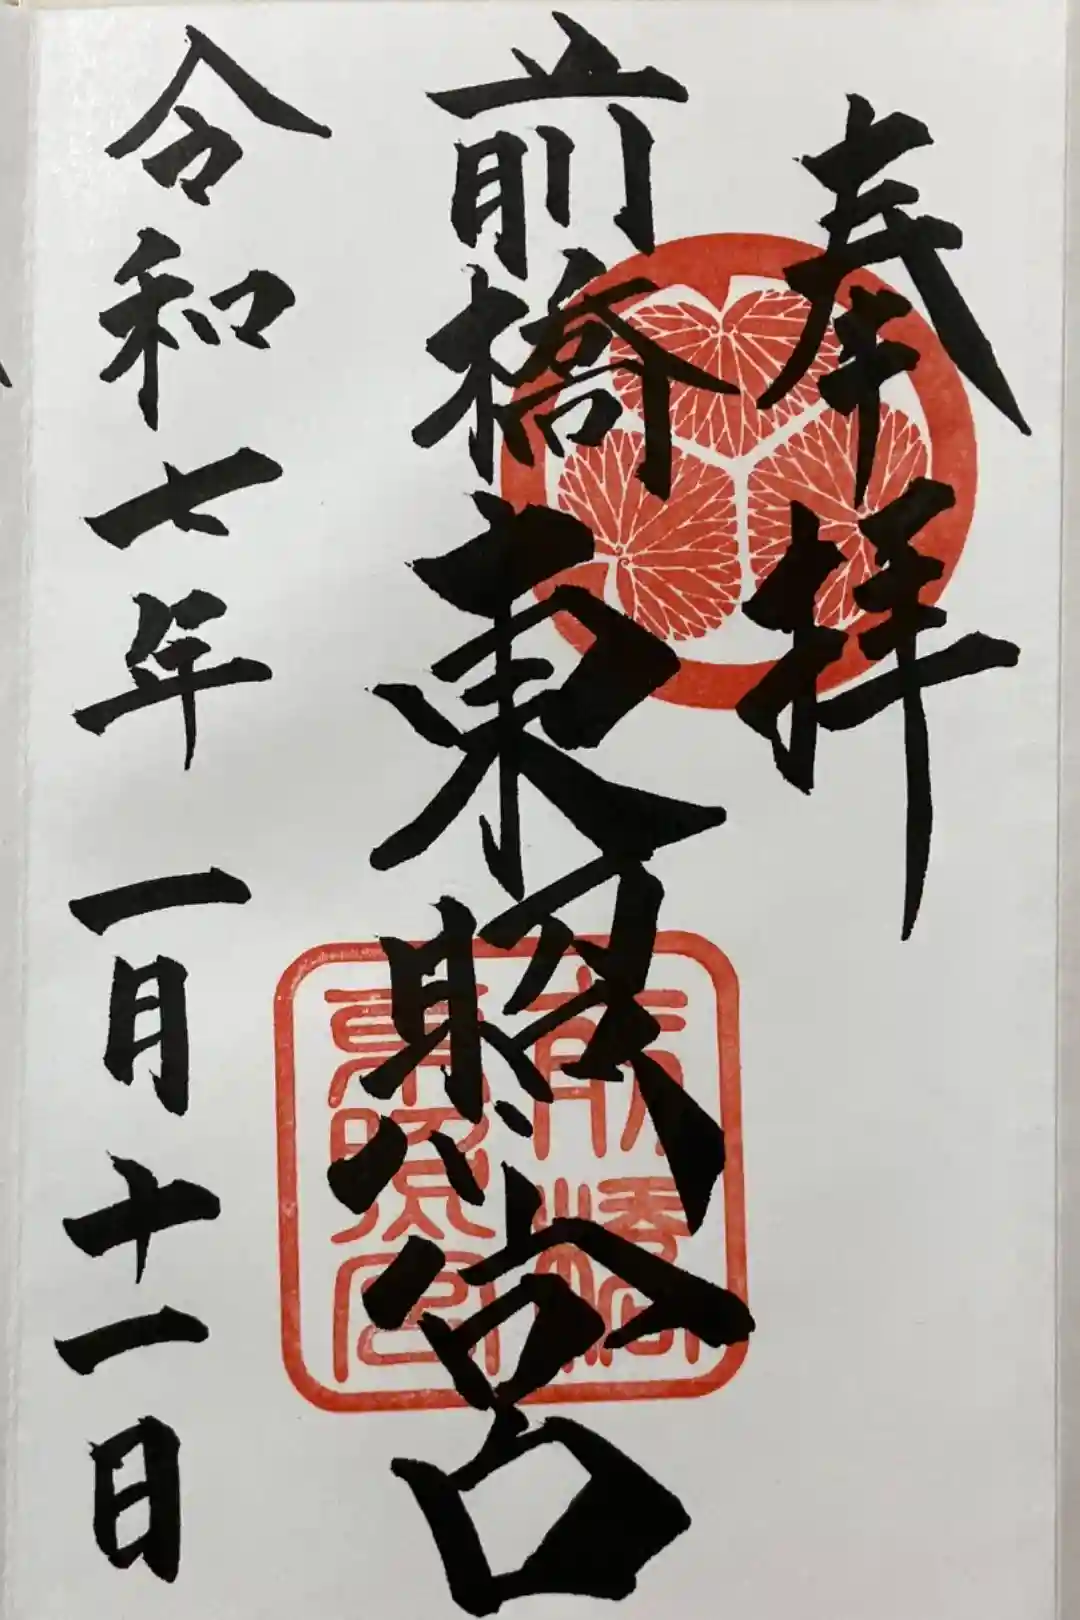 奉拝
前橋東照宮
令和七年一月十一日
前橋
東照宮